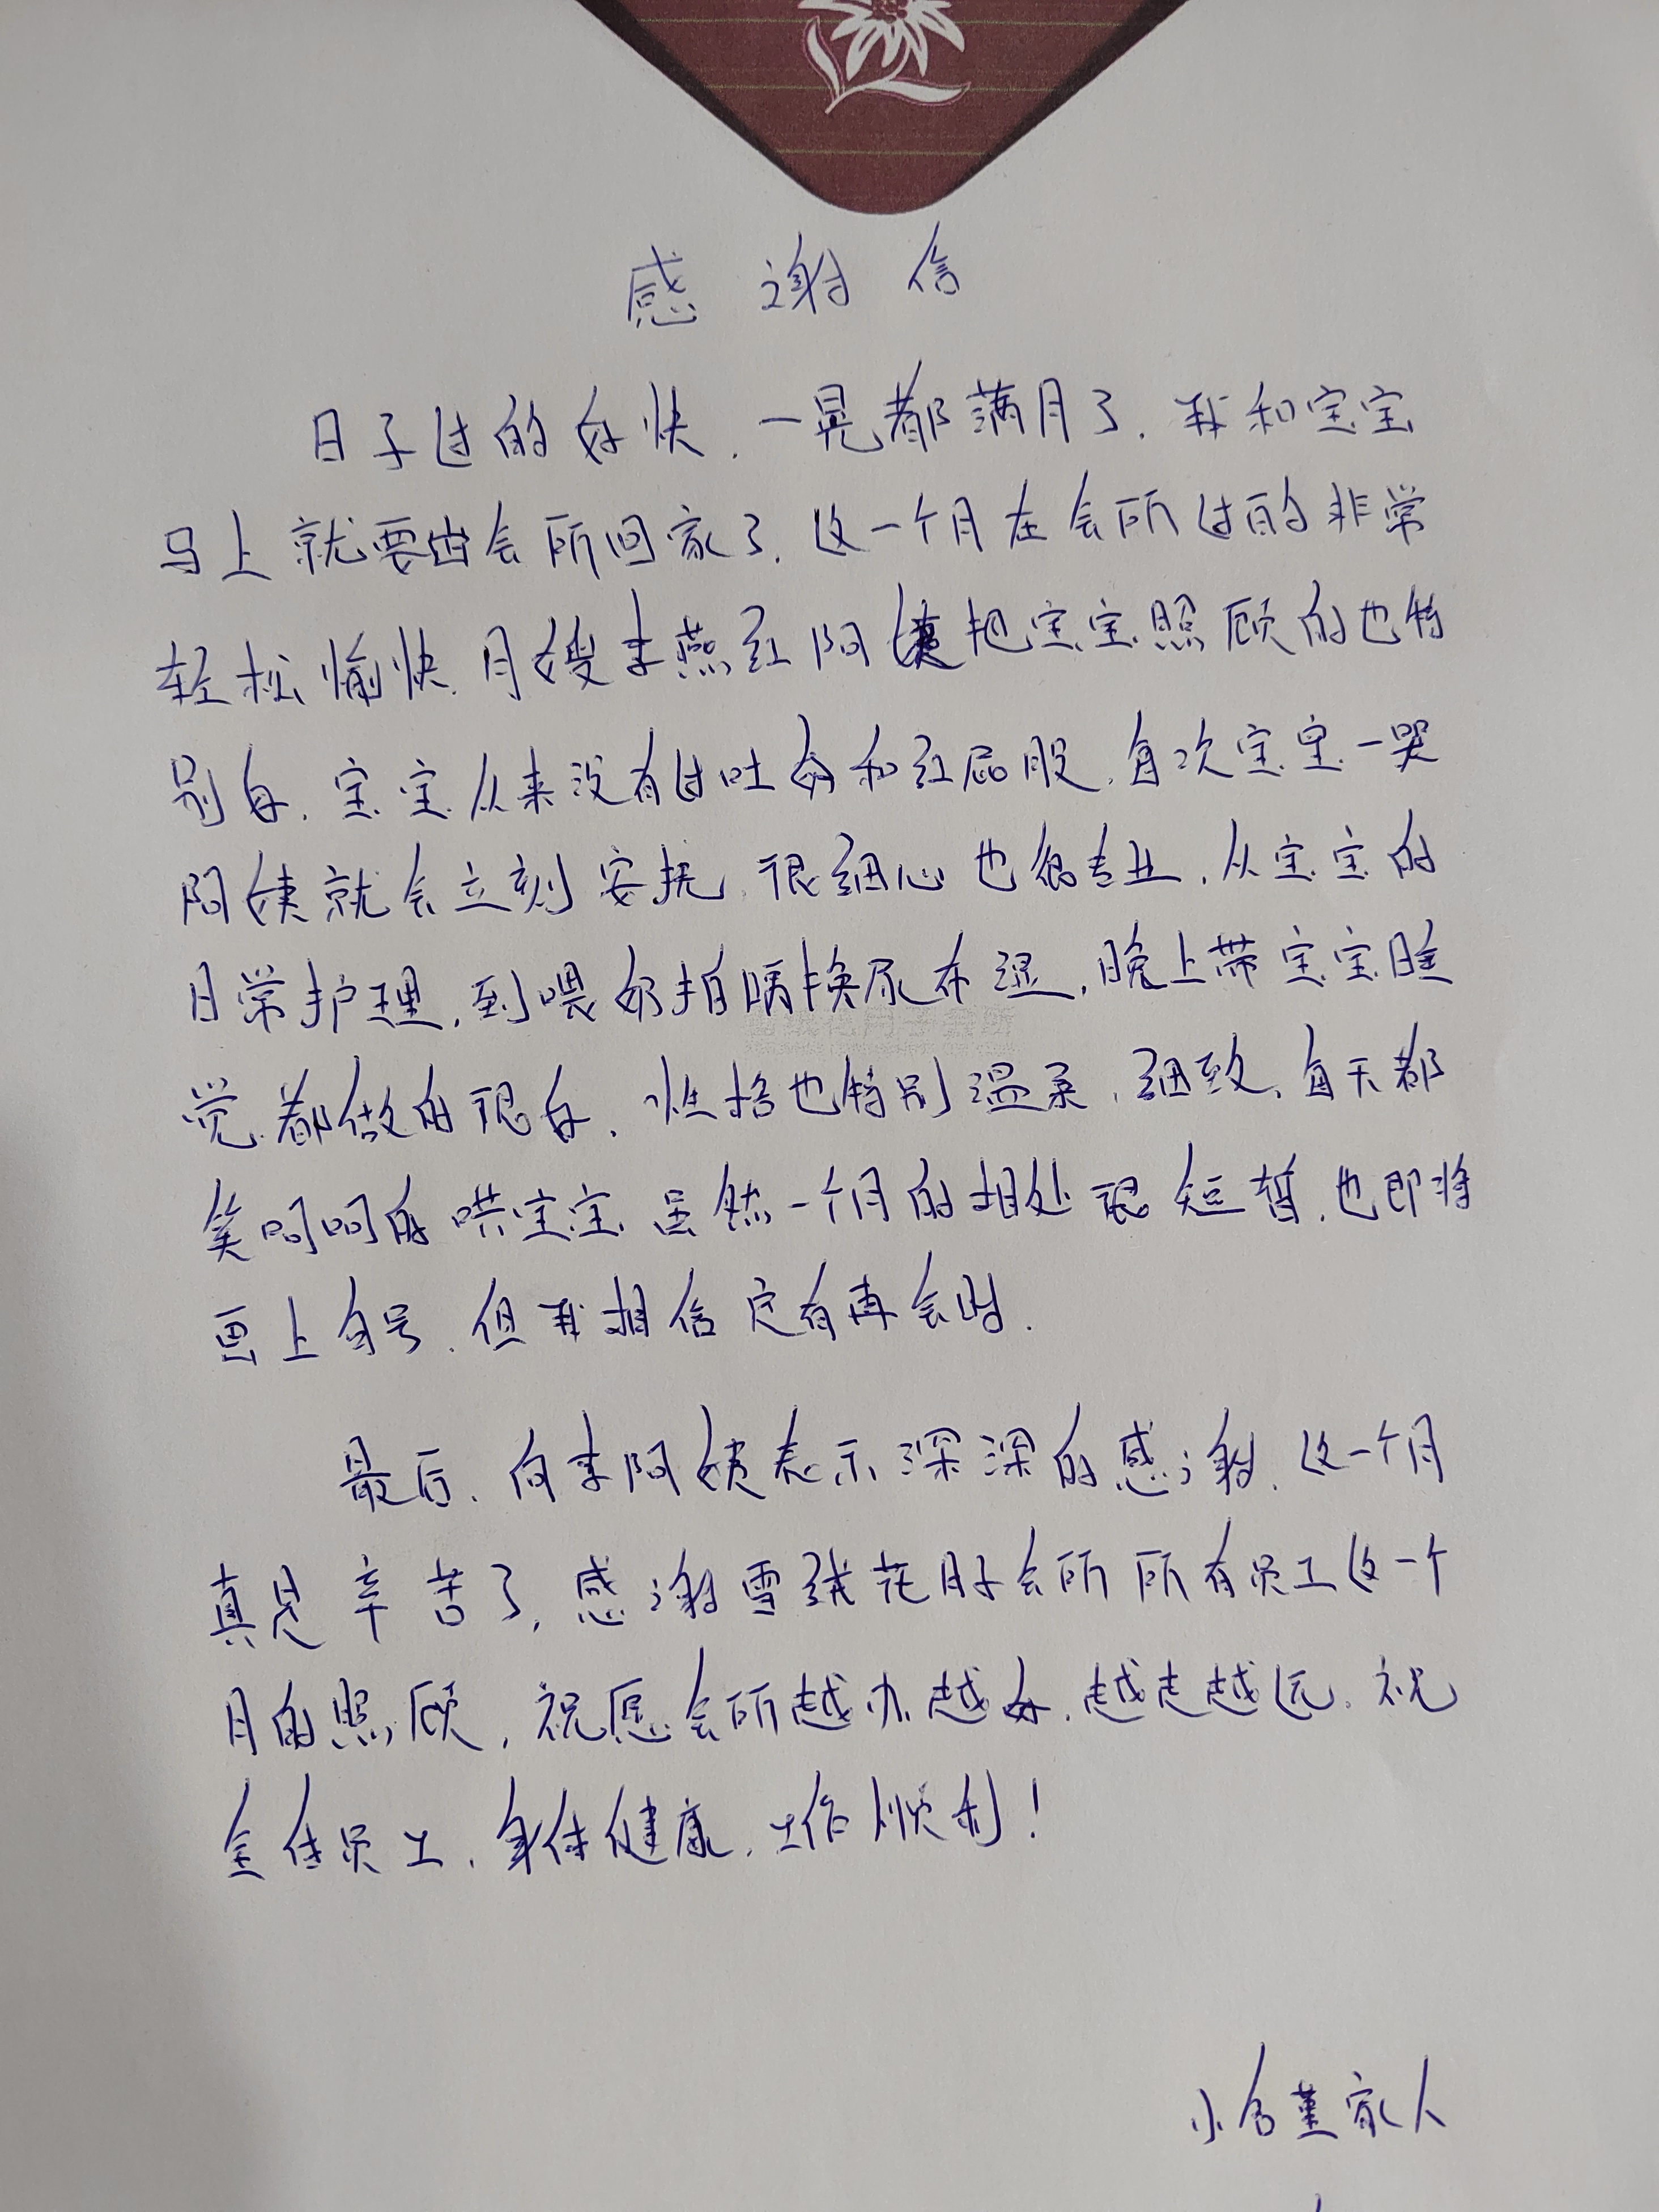 感谢信
日子过的好快.一晃都满月了.我和宝宝
马上就要出会所回家了.这一个月在会所过的非常
轻松愉快.月嫂李燕红阿姨把宝宝照顾的也特
别好.宝宝从来没有过吐奶和红屁股.每次宝宝一哭
阿姨就会立刻安抚.很细心也很专业.从宝宝的
日常护理.到喂奶拍嗝换尿布湿,晚上带宝宝睡
觉.都做的很好.性格也特别温柔.细致.每天都
笑呵呵的哄宝宝.虽然一个月的相处很短暂.也即将
画上句号.但我相信定有再会时.
最后.向李阿姨表示深深的感谢.这一个月
真是辛苦了.感谢雪绒花月子会所所有员工这一个
月的照顾,祝愿会所越办越好.越走越远.祝
全体员工.身体健康.工作顺利!
小含堇家人